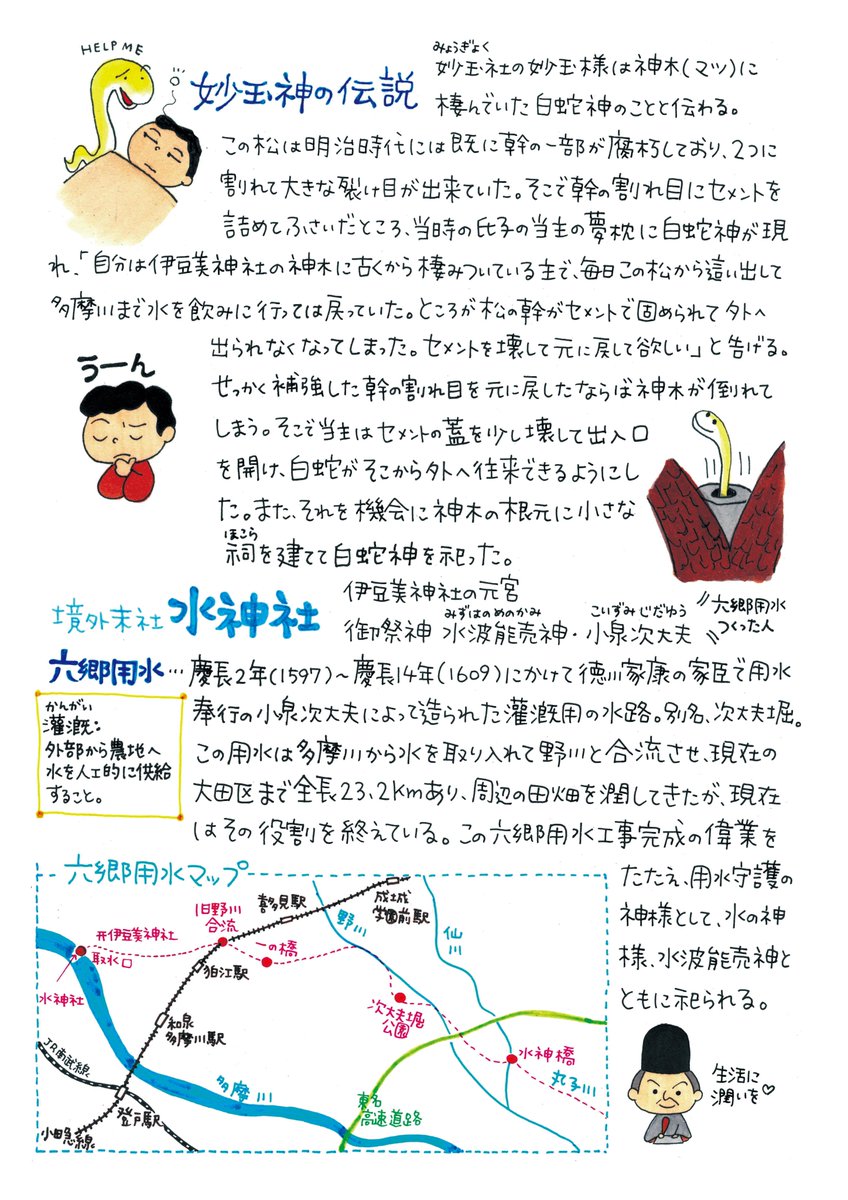 HELP ME
妙玉神の伝説
みょうぎょく
妙玉社の妙玉様は神木(マツ)に
棲んでいた白蛇神のことと伝わる。
この松は明治時代には既に幹の一部が腐朽しており、2つに
割れて大きな裂け目が出来ていた。そこで幹の割れ目にセメントを
詰めてふさいだところ、当時の氏子の当主の夢枕に白蛇神が現
れ、「自分は伊豆美神社の神木に古くから棲みついている主で、毎日この松から這い出して
多摩川まで水を飲みに行っては戻っていた。ところが松の幹がセメントで固められて外へ
出られなくなってしまった。セメントを壊して元に戻して欲しい」と告げる。
うーん
せっかく補強した幹の割れ目を元に戻したならば神木が倒れて
しまう。そこで当主はセメントの蓋を少し壊して出入口
を開け、白蛇がそこから外へ往来できるようにし
た。また、それを機会に神木の根元に小さな
ほこら
祠を建てて白蛇神を祀った。
境外末社 水神社
伊豆美神社の元宮
みずはのめのかみ こいずみじだゆう
御祭神 水波能売神・小泉次大夫
六郷用水
つくった人
六郷用水…慶長2年(1597)~慶長14年(1609)にかけて徳川家康の家臣で用水
奉行の小泉次大夫によって造られた灌漑用の水路。別名、次大夫堀。
この用水は多摩川から水を取り入れて野川と合流させ、現在の
大田区まで全長23.2kmあり、周辺の田畑を潤してきたが、現在
はその役割を終えている。この六郷用水工事完成の偉業を
たたえ、用水守護の
神様として、水の神
様、水波能売神と
ともに祀られる。
かんがい
灌漑:
外部から農地へ
水を人工的に供給
すること。
六郷用水マップ
喜多見駅
成城
学園前駅
旧野川
合流
野川
仙川
伊豆美神社
取水口
一の橋
狛江駅
水神社
次大夫堀
公園
和泉
多摩川駅
水神橋
JR南武線
多摩川
丸子川
東名
高速道路
登戸駅
小田急線
生活に
潤いを♡